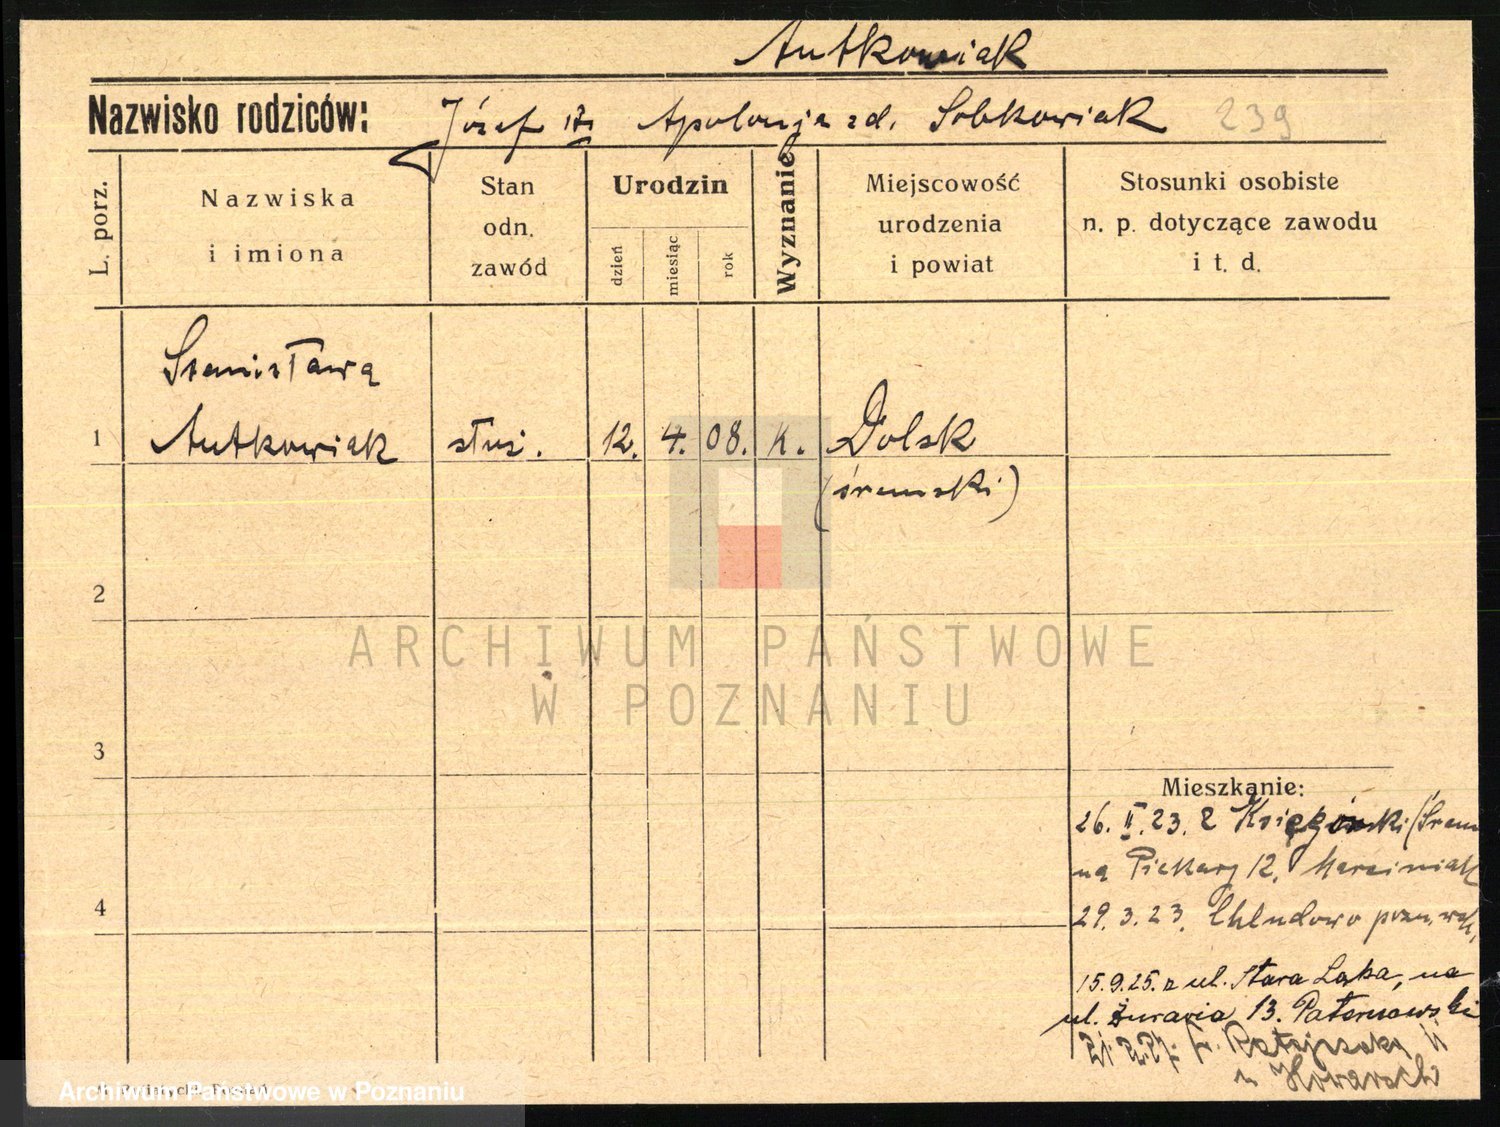 Antkowiak
Nazwisko rodziców: Józef i Apolonja zd. Sobkowiak 239
L. porz.
Nazwiska
i imiona
Stan
odn.
zawód
Urodzin
dzień
miesiąc
rok
Wyznanie
Miejscowość
urodzenia
i powiat
Stosunki osobiste
n. p. dotyczące zawodu
i t. d.
Stanisława
1 Antkowiak służ. 12. 4. 08. K. Dolsk
(śremski)
2
ARCHIWUM PAŃSTWOWE
W POZNANIU
3
Mieszkanie:
26. II. 23. z (Śrem
na Piekary 12, Marciniak
4
29. 3. 23. Chludowo pozn.
15.9.25. z ul. Stara Łąka, na
ul. Żurawia 13. Paternowski
Ratajczaka 11
Archiwum Państwowe w Poznaniu